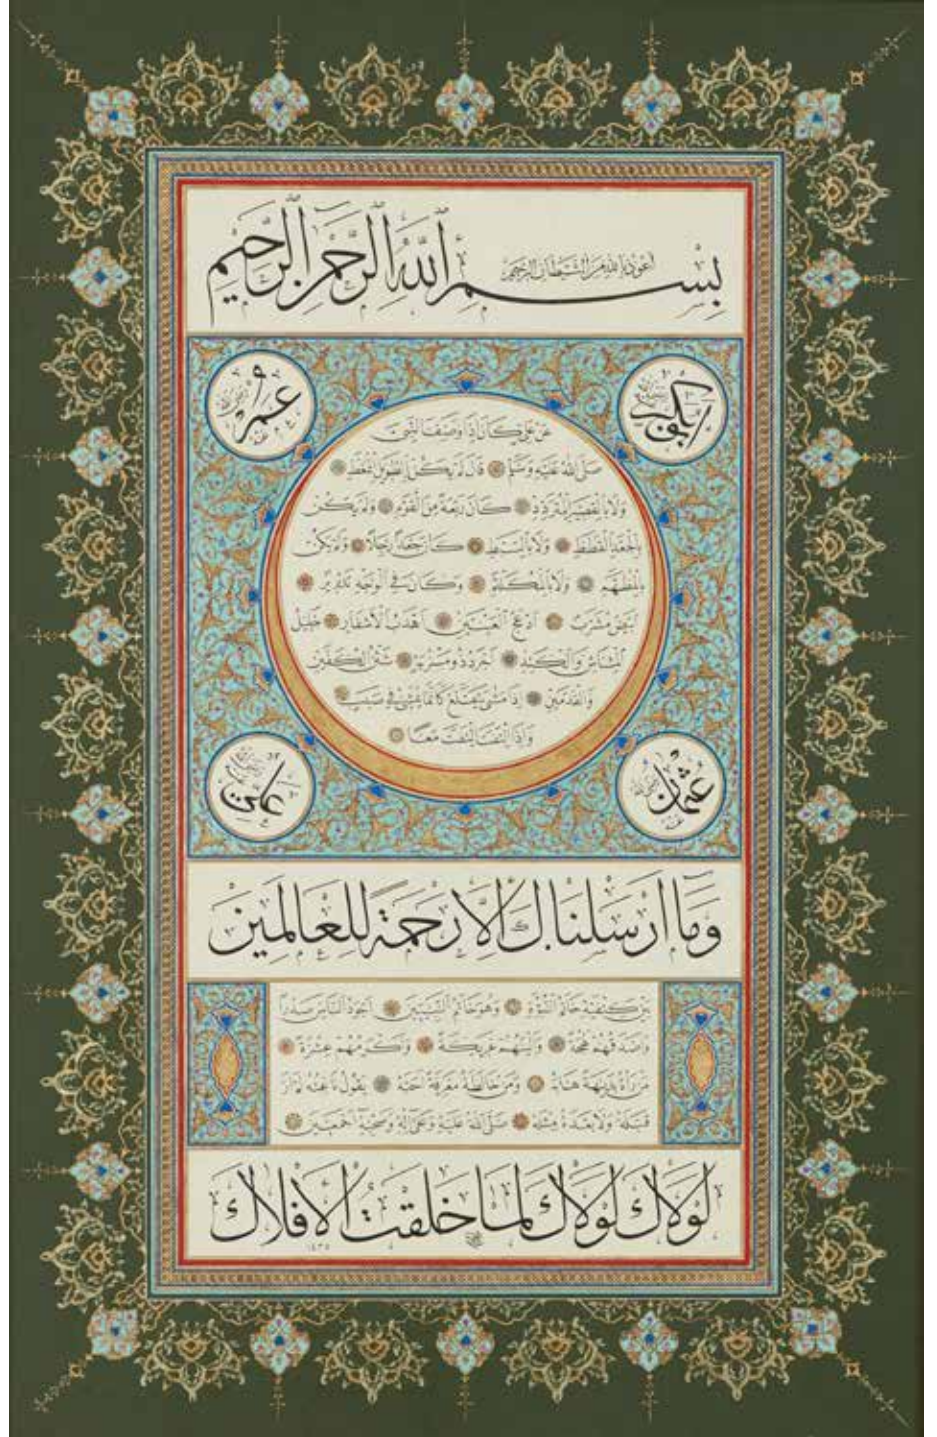 أعوذ بالله من الشيطان الرجيم
بِسْمِ اللهِ الرَّحْمٰنِ الرَّحِيمِ
أبو بكر رضي الله عنه
عُمَر رضي الله عنه
عَنْ عَلِيٍّ كَانَ إِذَا وَصَفَ النَّبِيَّ
صَلَّى اللهُ عَلَيْهِ وَسَلَّمَ قَالَ لَمْ يَكُنْ بِالطَّوِيلِ الْمُمَّغِطِ
وَلَا بِالْقَصِيرِ الْمُتَرَدِّدِ كَانَ رَبْعَةً مِنَ الْقَوْمِ وَلَمْ يَكُنْ
بِالْجَعْدِ الْقَطَطِ وَلَا بِالسَّبِطِ كَانَ جَعْدًا رَجِلًا وَلَمْ يَكُنْ
بِالْمُطَهَّمِ وَلَا بِالْمُكَلْثَمِ وَكَانَ فِي الْوَجْهِ تَدْوِيرٌ
أَبْيَضُ مُشْرَبٌ أَدْعَجُ الْعَيْنَيْنِ أَهْدَبُ الْأَشْفَارِ جَلِيلُ
الْمُشَاشِ وَالْكَتَدِ أَجْرَدُ ذُو مَسْرُبَةٍ شَثْنُ الْكَفَّيْنِ
وَالْقَدَمَيْنِ إِذَا مَشَى يَتَقَلَّعُ كَأَنَّمَا يَمْشِي فِي صَبَبٍ
وَإِذَا الْتَفَتَ الْتَفَتَ مَعًا
عثمان رضي الله عنه
علي رضي الله عنه
وَمَا أَرْسَلْنَاكَ إِلَّا رَحْمَةً لِلْعَالَمِينَ
بَيْنَ كَتِفَيْهِ خَاتَمُ النُّبُوَّةِ وَهُوَ خَاتَمُ النَّبِيِّينَ أَجْوَدُ النَّاسِ صَدْرًا
وَأَصْدَقُهُمْ لَهْجَةً وَأَلْيَنُهُمْ عَرِيكَةً وَأَكْرَمُهُمْ عِشْرَةً
مَنْ رَآهُ بَدِيهَةً هَابَهُ وَمَنْ خَالَطَهُ مَعْرِفَةً أَحَبَّهُ يَقُولُ نَاعِتُهُ لَمْ أَرَ
قَبْلَهُ وَلَا بَعْدَهُ مِثْلَهُ صَلَّى اللهُ عَلَيْهِ وَعَلَى آلِهِ وَصَحْبِهِ أَجْمَعِينَ
لَوْلَاكَ لَوْلَاكَ لَمَا خَلَقْتُ الْأَفْلَاكَ
١٤٣٥